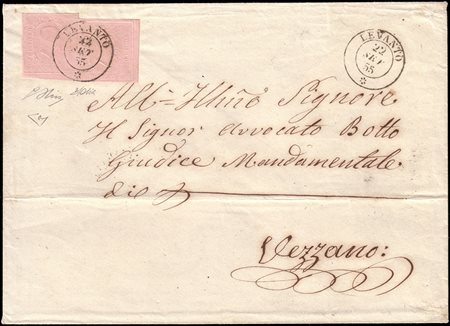 LEVANTO
22
SET
55
LEVANTO
22
SET
55
All'Illmo Signore
Il Signor Avvocato Botto
Giudice Mandamentale
di
Vezzano: